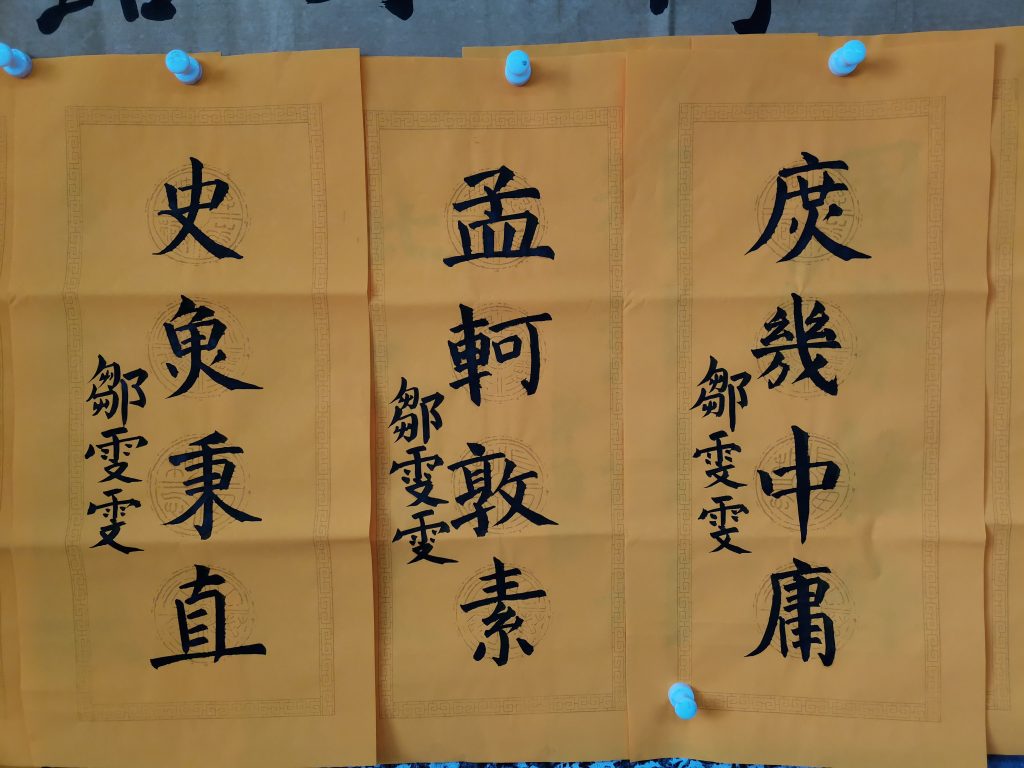 庶幾中庸
鄒雯雯
孟軻敦素
鄒雯雯
史魚秉直
鄒雯雯